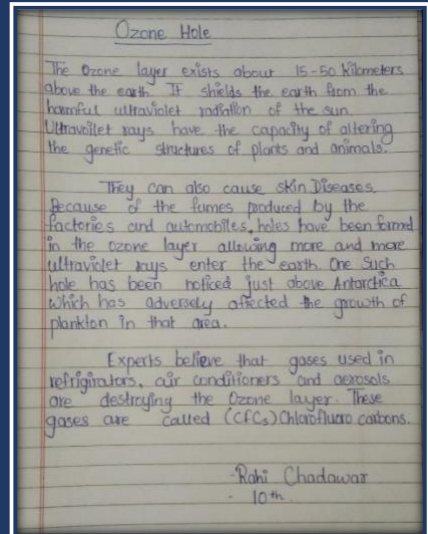 Ozone Hole
The Ozone layer exists about 15-50 Kilometers
above the earth. It shields the earth from the
harmful ultraviolet radiation of the sun
Ultravoilet rays have the capacity of altering
the genetic structures of plants and animals.
They can also cause skin Diseases.
Because of the fumes produced by the
factories and automobiles, holes have been formed
in the ozone layer allowing more and more
ultraviolet rays enter the earth. One Such
hole has been noticed just above Antarctica
which has adversely affected the growth of
plankton in that area.
Experts believe that gases used in
refrigirators, air conditioners and aerosols
are destroying the Ozone layer. These
gases are called (CFCs) Chlorofluoro carbons.
-Rahi Chadawar
- 10th.